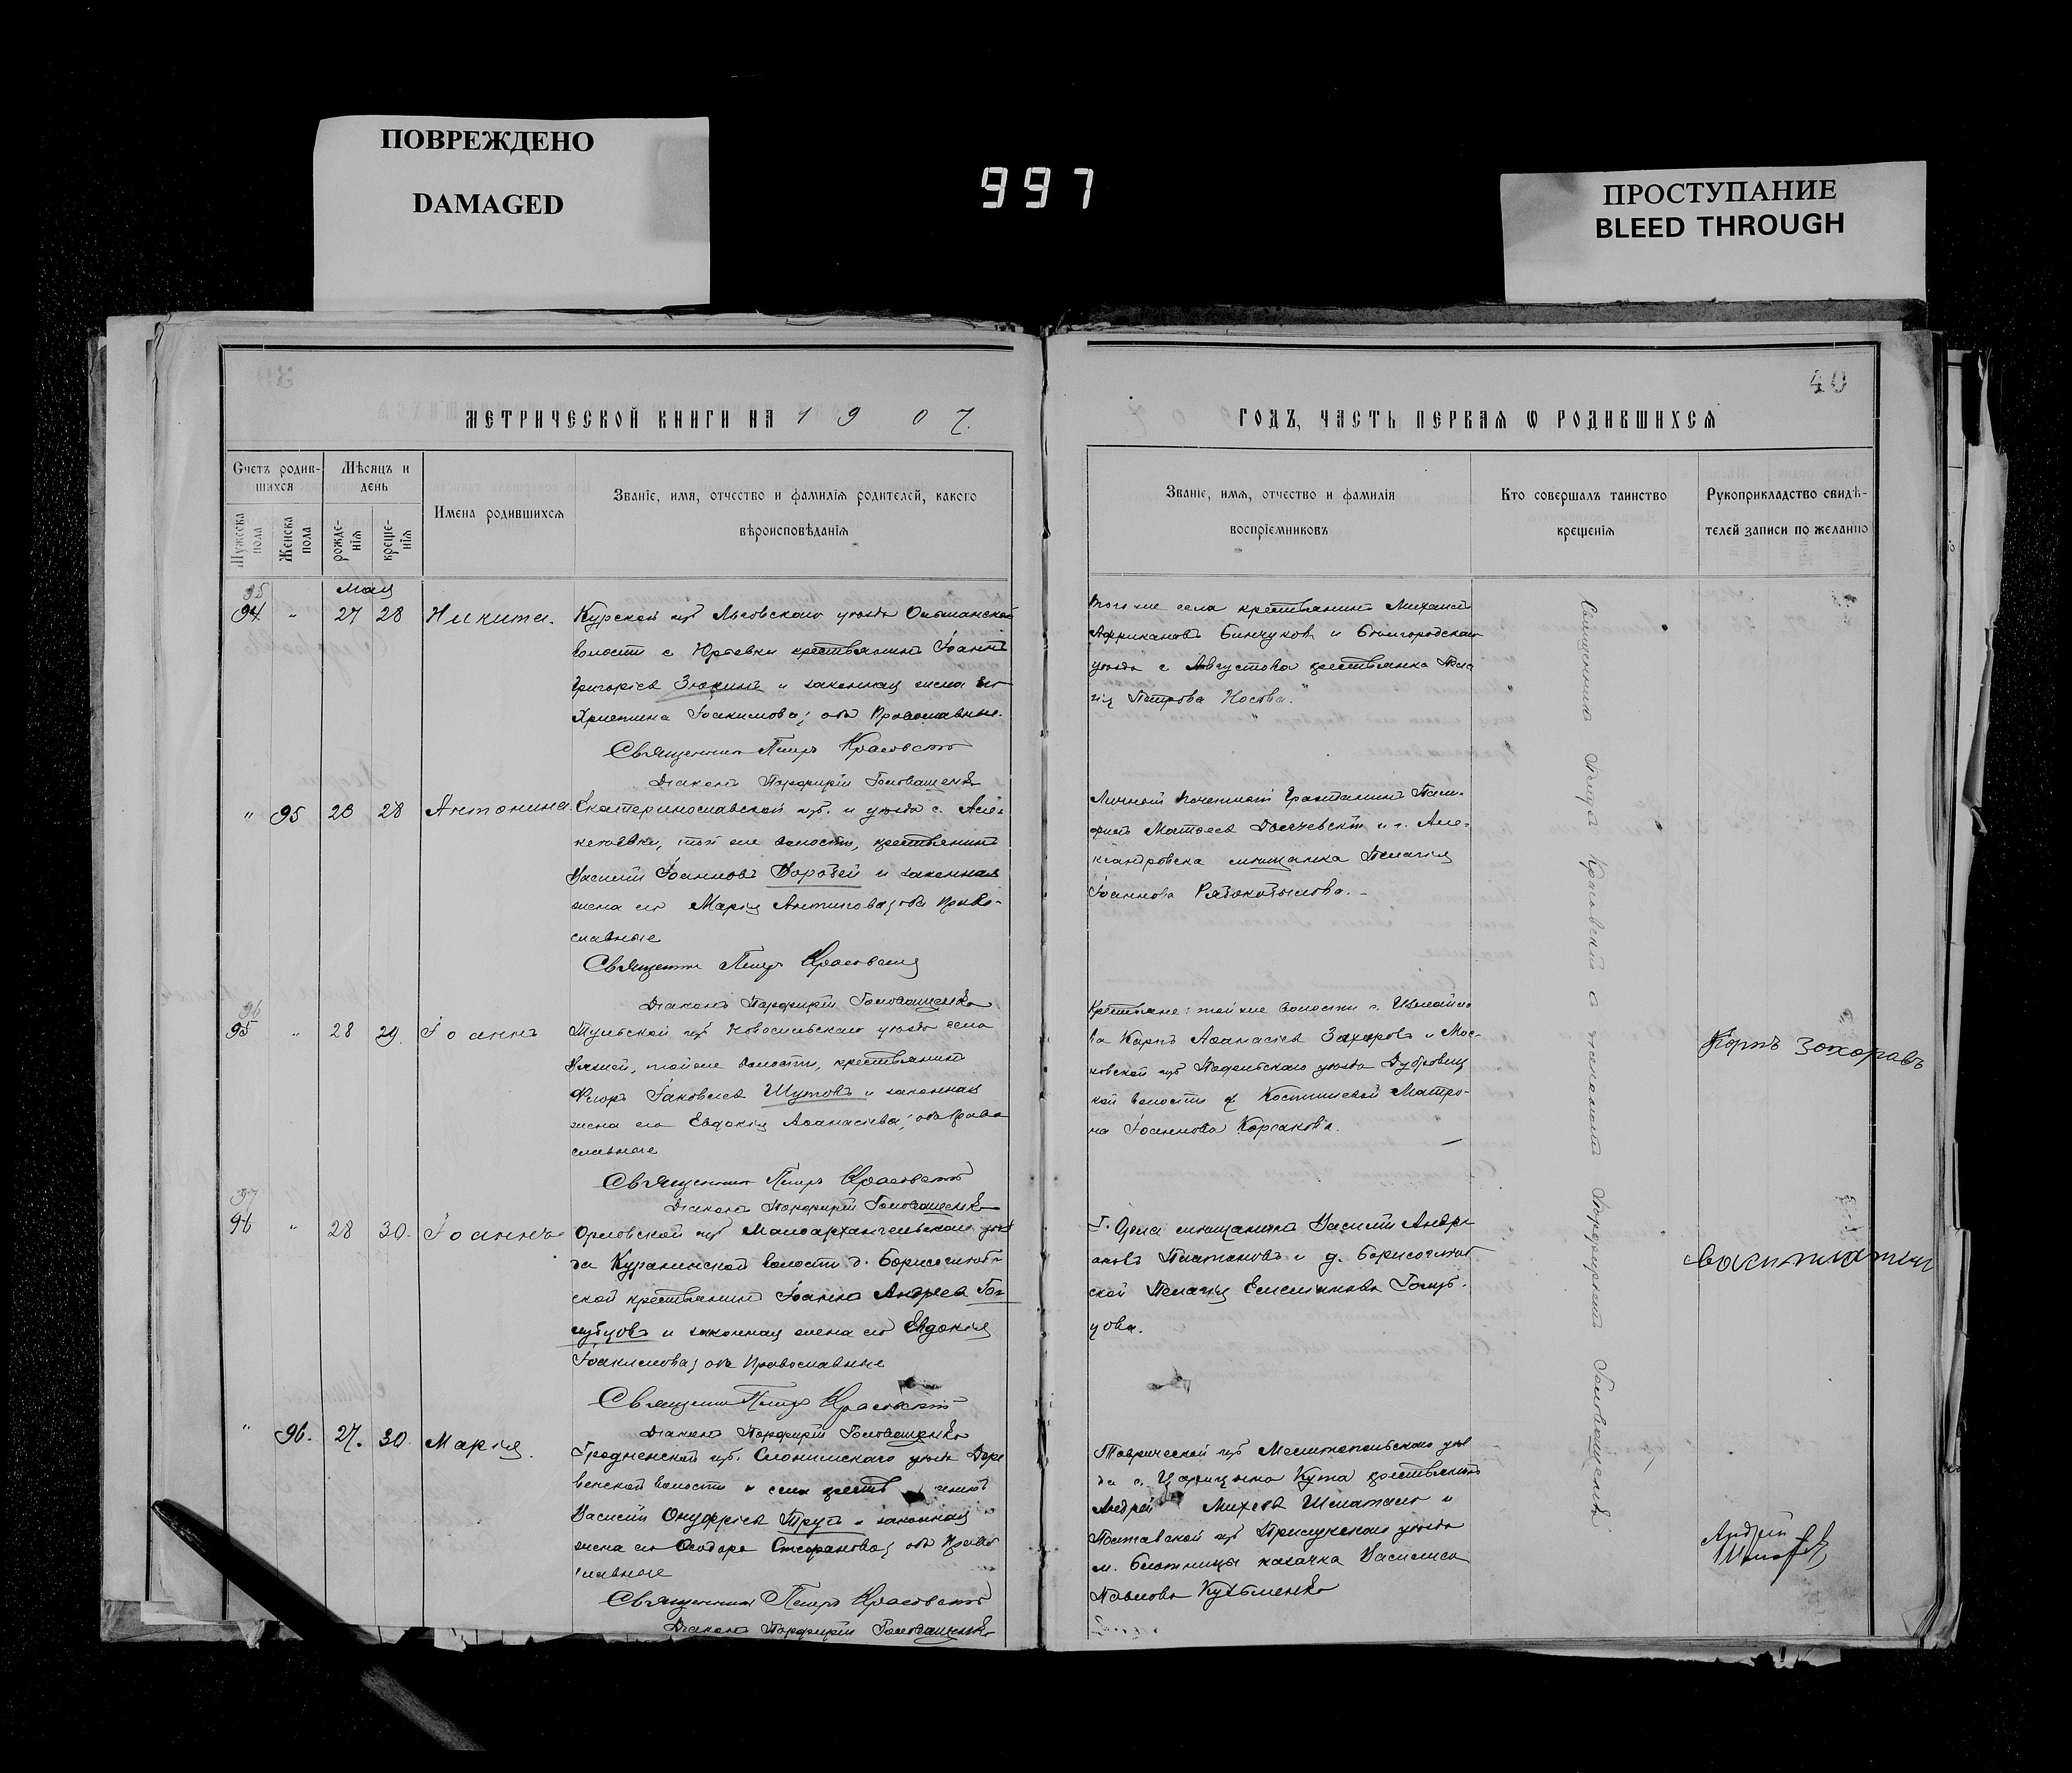 ПОВРЕЖДЕНО
DAMAGED
997
ПРОСТУПАНИЕ
BLEED THROUGH
40
МЕТРИЧЕСКОЙ КНИГИ НА 1907.
ГОДЪ, ЧАСТЬ ПЕРВАЯ Ѡ РОДИВШИХСЯ
Счетъ родив-
шихся
Мужеска пола
Женска пола
Мѣсяцъ и
день
рожде-
нія
креще-
нія
Имена родившихся
Званіе, имя, отчество и фамилія родителей, какого
вѣроисповѣданія
Званіе, имя, отчество и фамилія
воспріемниковъ
Кто совершалъ таинство
крещенія
Рукоприкладство свидѣ-
телей записи по желанію
95
Мая
94 " 27 28 Никита.
Курской губ Льговскаго уѣзда
волости с Юрьевки крестьянинъ Іоаннъ
Григоріевъ Зюкинъ и законная жена его
Христина Іоакимова; оба Православные.
Священникъ Петръ Красовскій
Діаконъ Порфирій Головащенко
Того же села крестьянинъ Михаилъ
Африкановъ и Бѣлгородскаго
уѣзда с Августова крестьянка Пела
гія Петрова Носова.
" 95 26 28 Антонина.
Екатеринославской губ. и уѣзда с. Але-
ксѣевки, той же волости, крестьянинъ
Василій Іоанновъ Воробей и законная
жена его Марія Антипова; оба Право-
славные
Священникъ Петръ Красовскій
Діаконъ Порфирій Головащенко
Личный Почетный Гражданинъ
Матѳеевъ и г. Але-
ксандровска мѣщанка Пелагія
Іоаннова Рябокобылова.
96
95 " 28 29. Іоаннъ
Тульской губ Новосильскаго уѣзда села
той же волости, крестьянинъ
Флоръ Іаковлевъ Шутовъ и законная
жена его Евдокія Аѳанасіева; оба Право
славные
Священникъ Петръ Красовскій
Діаконъ Порфирій Головащенко
Крестьяне: той же волости с. Измайло
ва Карпъ Аѳанасіевъ Захаровъ и Мос-
ковской губ Подольскаго уѣзда Дубровиц
кой волости Матро-
на Іоаннова Корсакова.
Карпъ Захоравъ
97
96 " 28 30. Іоаннъ
Орловской губ Малоархангельскаго уѣз
да Куракинской волости д. Борисоглѣб-
ской крестьянинъ Іоаннъ Андреевъ Го-
лубцовъ и законная жена его Евдокія
Іоакимова; оба Православные
Священникъ Петръ Красовскій
Діаконъ Порфирій Головащенко
Г. Орла мѣщанинъ Василій Андре
ановъ Платановъ и д. Борисоглѣб
ской Пелагія Емеліянова Голуб-
цова.
" 96. 27. 30 Марія.
Гродненской губ. Слонимскаго уѣзда
волости
Василій Онуфріевъ Трусъ и законная
жена его Ѳеодора Стефанова; оба Право
славные
Священникъ Петръ Красовскій
Діаконъ Порфирій Головащенко
Таврической губ Мелитопольскаго уѣз
да с. Царицына Кута крестьянинъ
Андрей Михеевъ и
Полтавской губ Прилукскаго уѣзда
м. казачка Василиса
Павлова Кузьменко
Андрей
Священникъ Петръ Красовскій с псаломщ Порфирій Головащенко